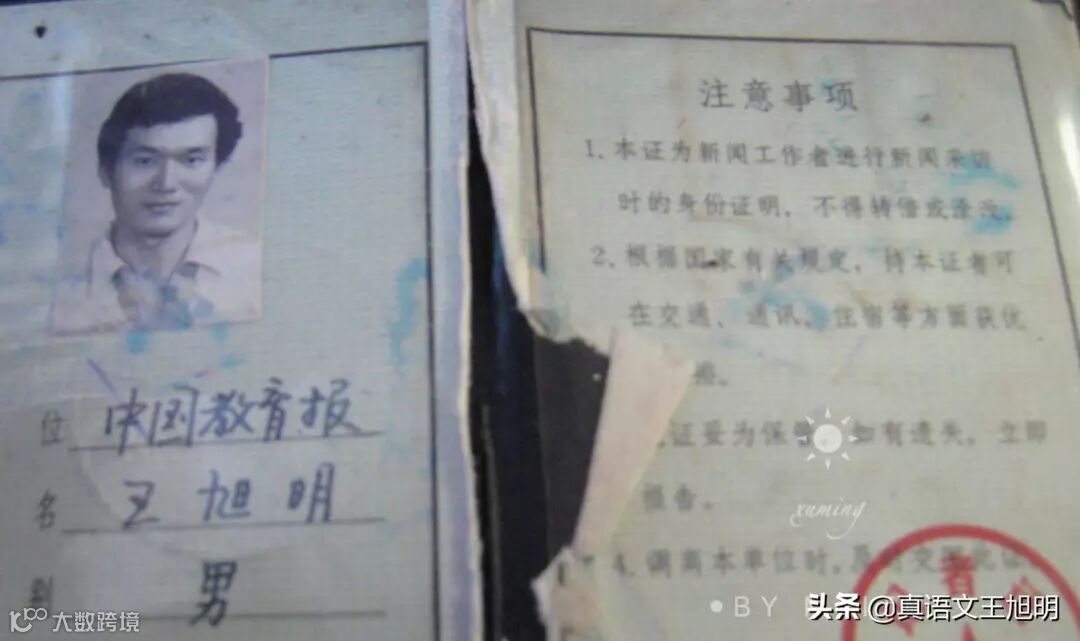 位 中国教育报
名 王旭明
别 男
注意事项
1.本证为新闻工作者进行新闻采访
时的身份证明,不得转借或涂改。
2.根据国家有关规定,持本证者可
在交通、通讯、住宿等方面获优
惠。
证妥为保管 如有遗失,立即
报告。
4.调离本单位时,
者
xuming
BY
头条@真语文王旭明
大数跨境